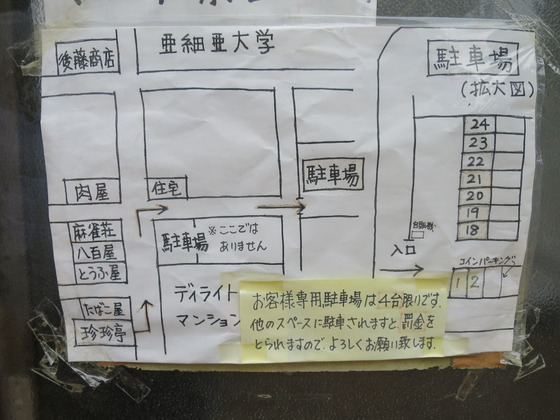 後藤商店
亜細亜大学
駐車場
(拡大図)
24
23
22
21
20
19
18
肉屋
住宅
駐車場
麻雀荘
八百屋
とうふ屋
駐車場
※ここでは
ありません
入口
コインパーキング
1 2
たばこ屋
珍珍亭
ディライト
マンション
お客様専用駐車場は4台限りです。
他のスペースに駐車されますと罰金を
とられますので、よろしくお願い致します。